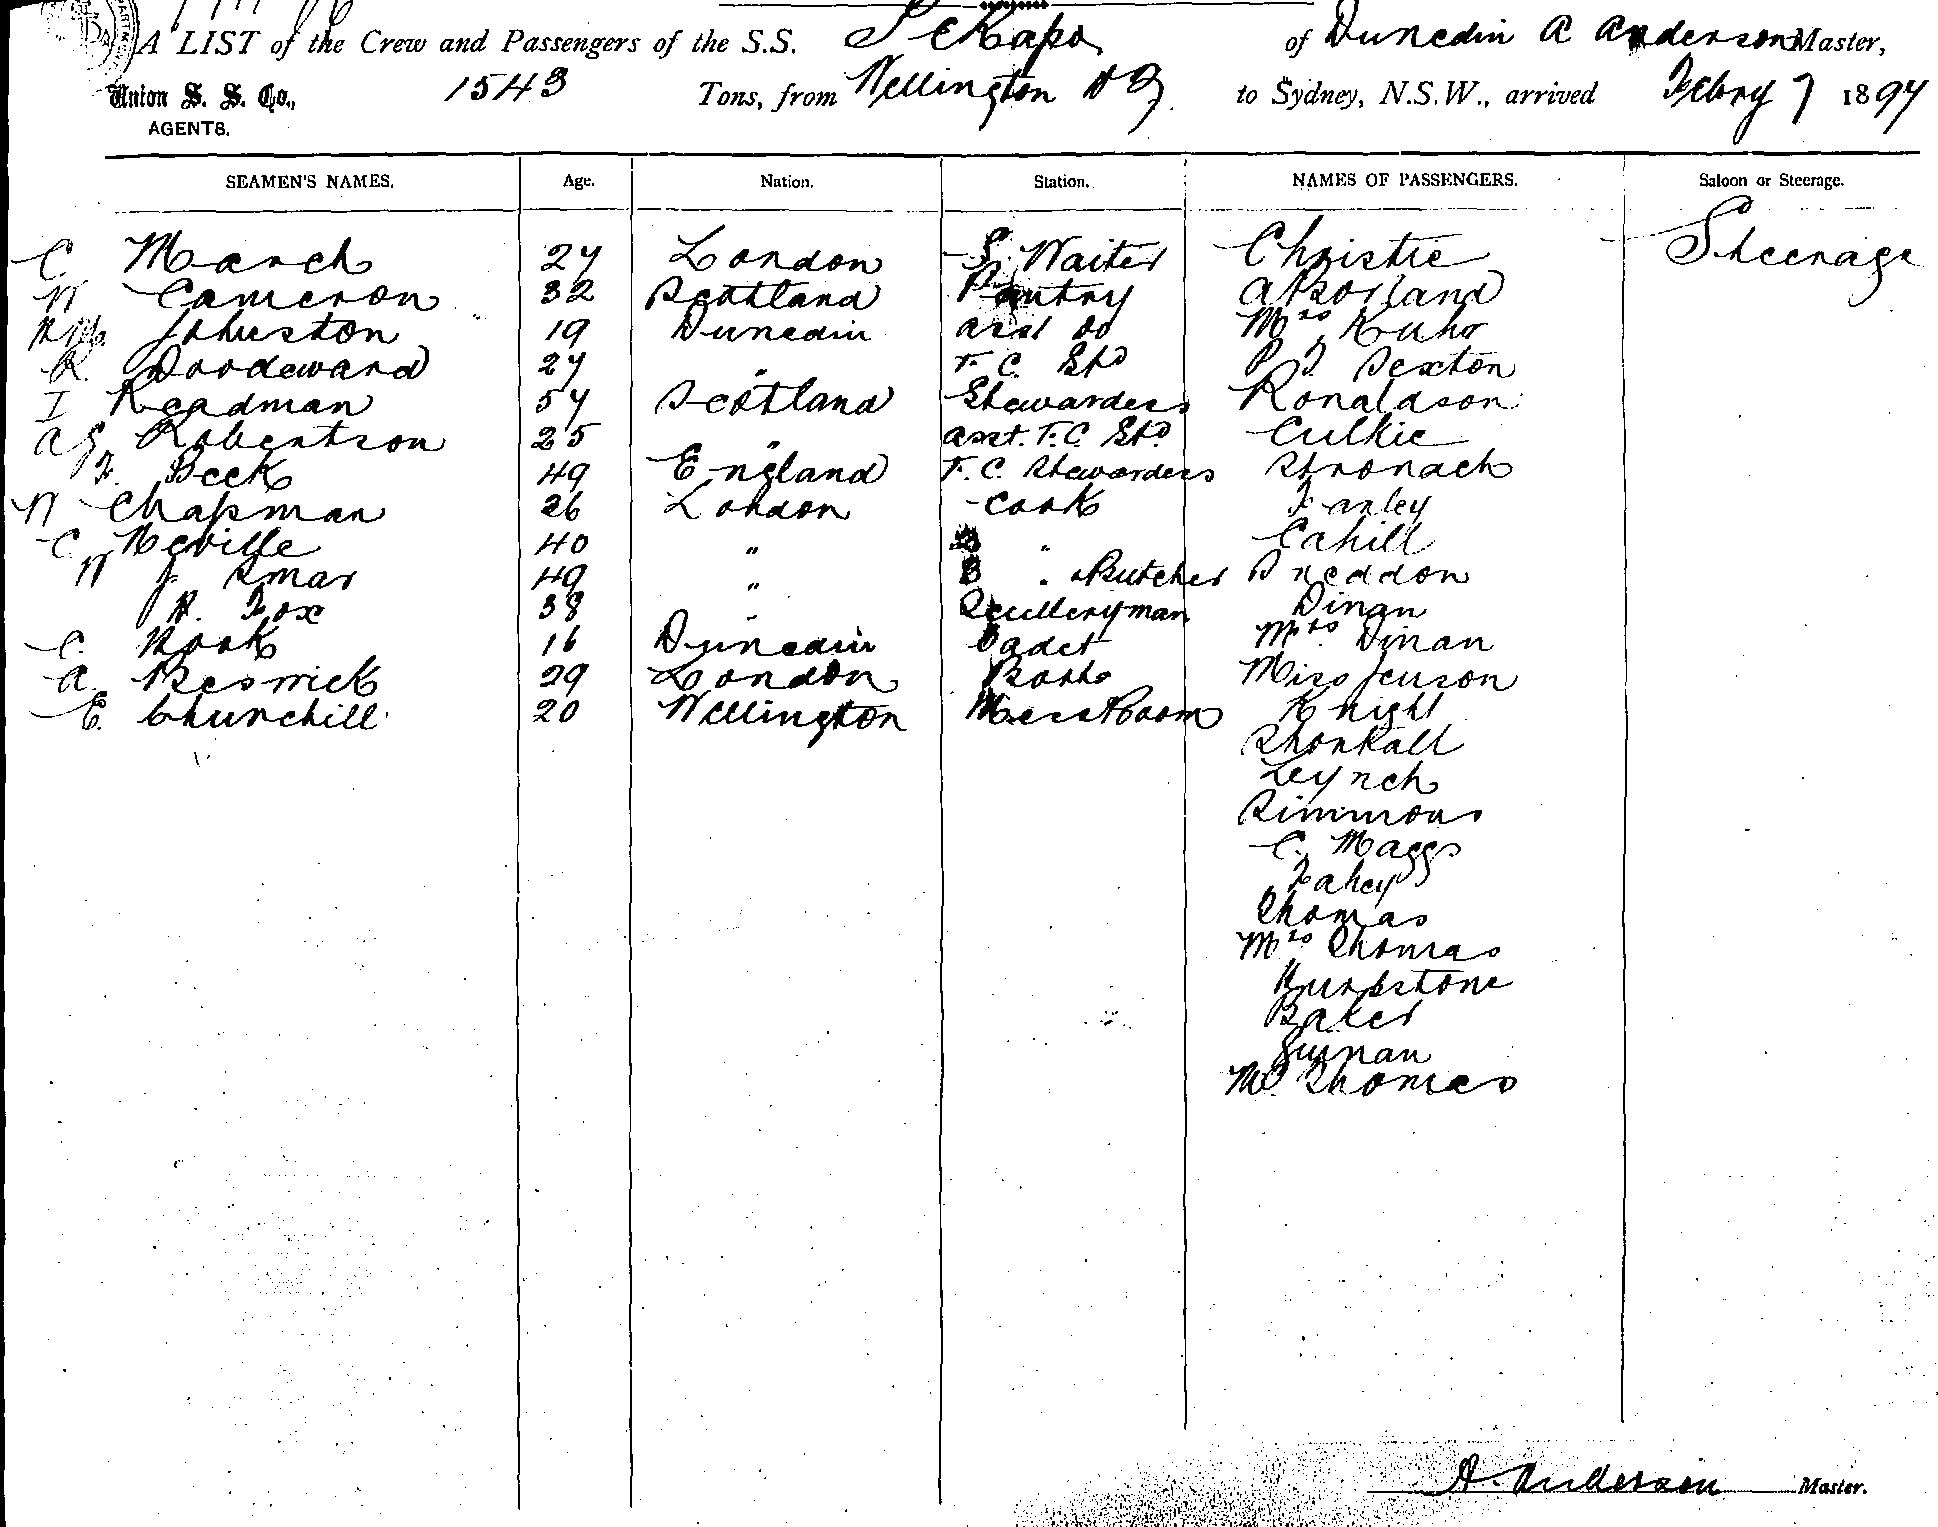 A LIST of the Crew and Passengers of the S.S. Tekapo of Dunedin A Anderson Master,
Union S. S. Co., 1543 Tons, from Wellington NZ to Sydney, N.S.W., arrived Febry 7 1897
AGENTS.
SEAMEN'S NAMES. Age. Nation. Station. NAMES OF PASSENGERS. Saloon or Steerage.
C. March 27 London S. Waiter Christie Steerage
W Cameron 32 Scotland Pantry A Borland
Wm Johnston 19 Dunedin asst do Mrs Kuhr
R. Woodeward 27 " F. C. Std P J Sexton
I Readman 54 Scotland Stewardess Ronaldson
A G Robertson 25 " asst. F. C. Std Culkie
F. Beck 49 England F. C. Stewardess Stronach
W Chapman 26 London Cook Fanley
C Neville 40 " 2 " Cahill
W J Smar 49 " 3 " Butcher Sneddon
H. Fox 38 " Sculleryman Dinan
C. Rook 16 Dunedin Cadet Mrs Dinan
A Beswick 29 London Boots Miss Jenson
E. Churchill 20 Wellington Mess Room Knight
Leynch
Simmons
C. Maggs
Fahey
Thomas
Mrs Thomas
Baker
Guinan
Thomas
A. Anderson Master.